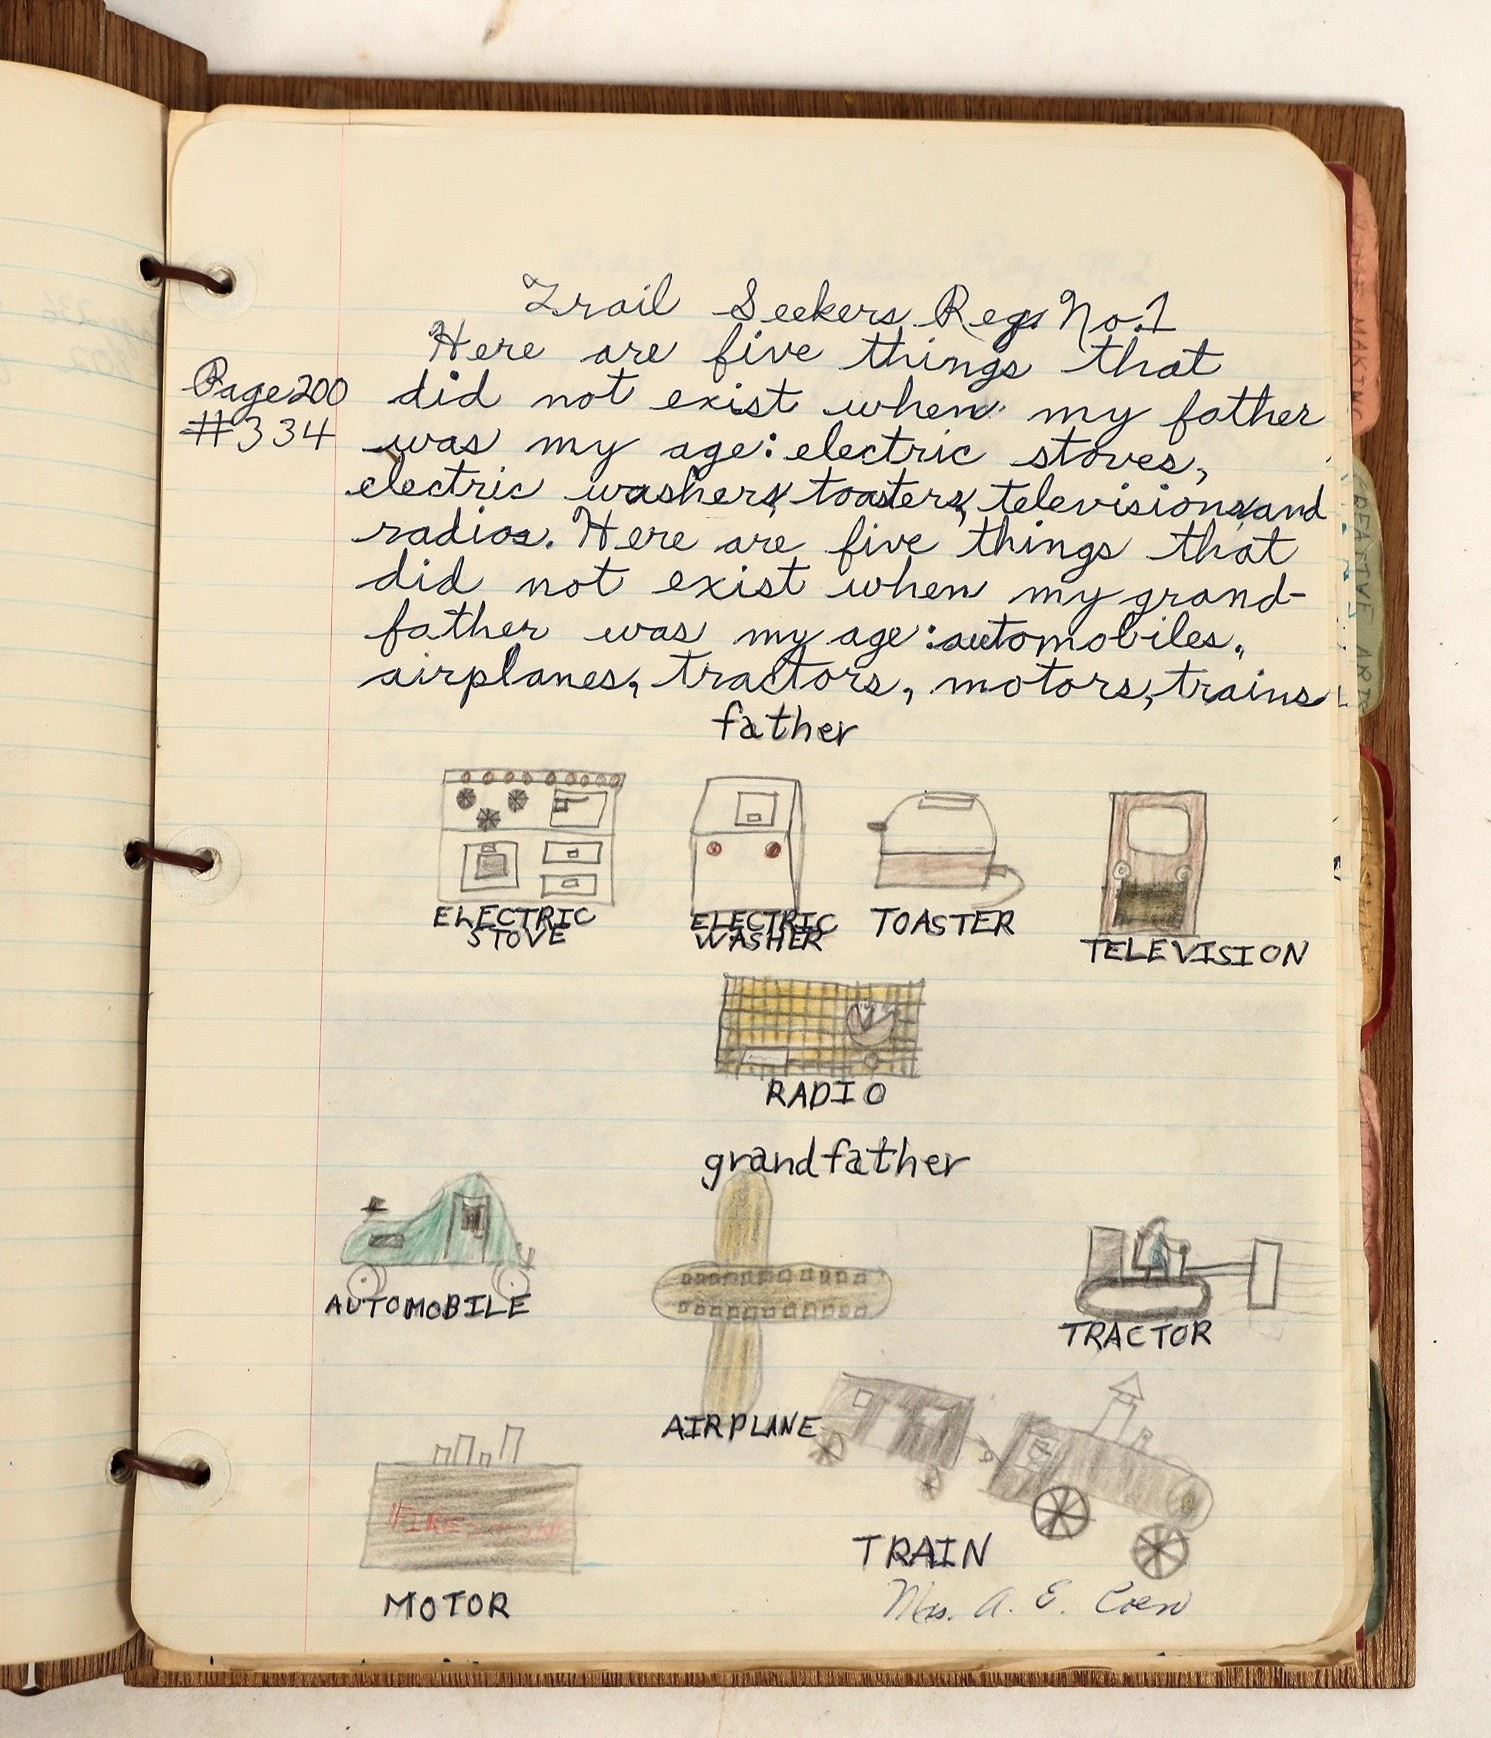 Trail Seekers Reg. No. 1
Here are five things that
Page 200
#334
did not exist when my father
was my age: electric stoves,
electric washers, toasters, televisions, and
radios. Here are five things that
did not exist when my grand-
father was my age: automobiles,
airplanes, tractors, motors, trains
father
ELECTRIC
STOVE
ELECTRIC
WASHER
TOASTER
TELEVISION
RADIO
grandfather
AUTOMOBILE
AIRPLANE
TRACTOR
MOTOR
TRAIN
Mrs. A. E. Coen
CREATIVE ARTS